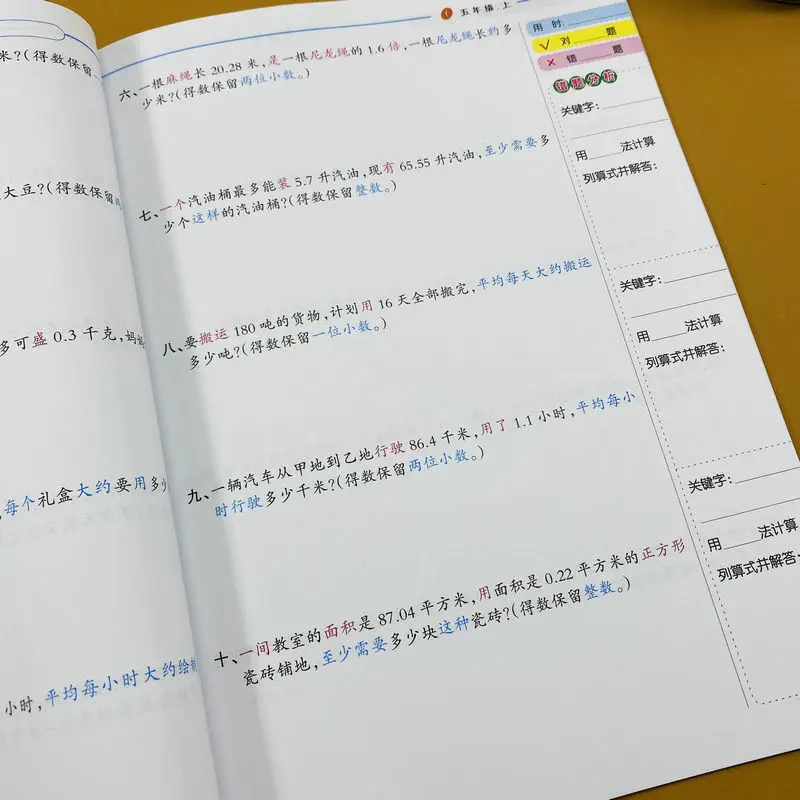 米?(得数保留
大豆?(得数保留
多可盛 0.3 千克,妈
每个礼盒大约要用多少
小时,平均每小时大约绘
五年级.上
六、一根麻绳长 20.28 米,是一根尼龙绳的 1.6 倍,一根尼龙绳长约多
少米?(得数保留两位小数。)
七、一个汽油桶最多能装 5.7 升汽油,现有 65.55 升汽油,至少需要多
少个这样的汽油桶?(得数保留整数。)
八、要搬运 180 吨的货物,计划用 16 天全部搬完,平均每天大约搬运
多少吨?(得数保留一位小数。)
九、一辆汽车从甲地到乙地行驶 86.4 千米,用了 1.1 小时,平均每小
时行驶多少千米?(得数保留两位小数。)
十、一间教室的面积是 87.04 平方米,用面积是 0.22 平方米的正方形
瓷砖铺地,至少需要多少块这种瓷砖?(得数保留整数。)
用 时:
√ 对 题
× 错 题
错题分析
关键字:
用____法计算
列算式并解答:
关键字:
用____法计算
列算式并解答:
关键字:
用____法计算
列算式并解答: